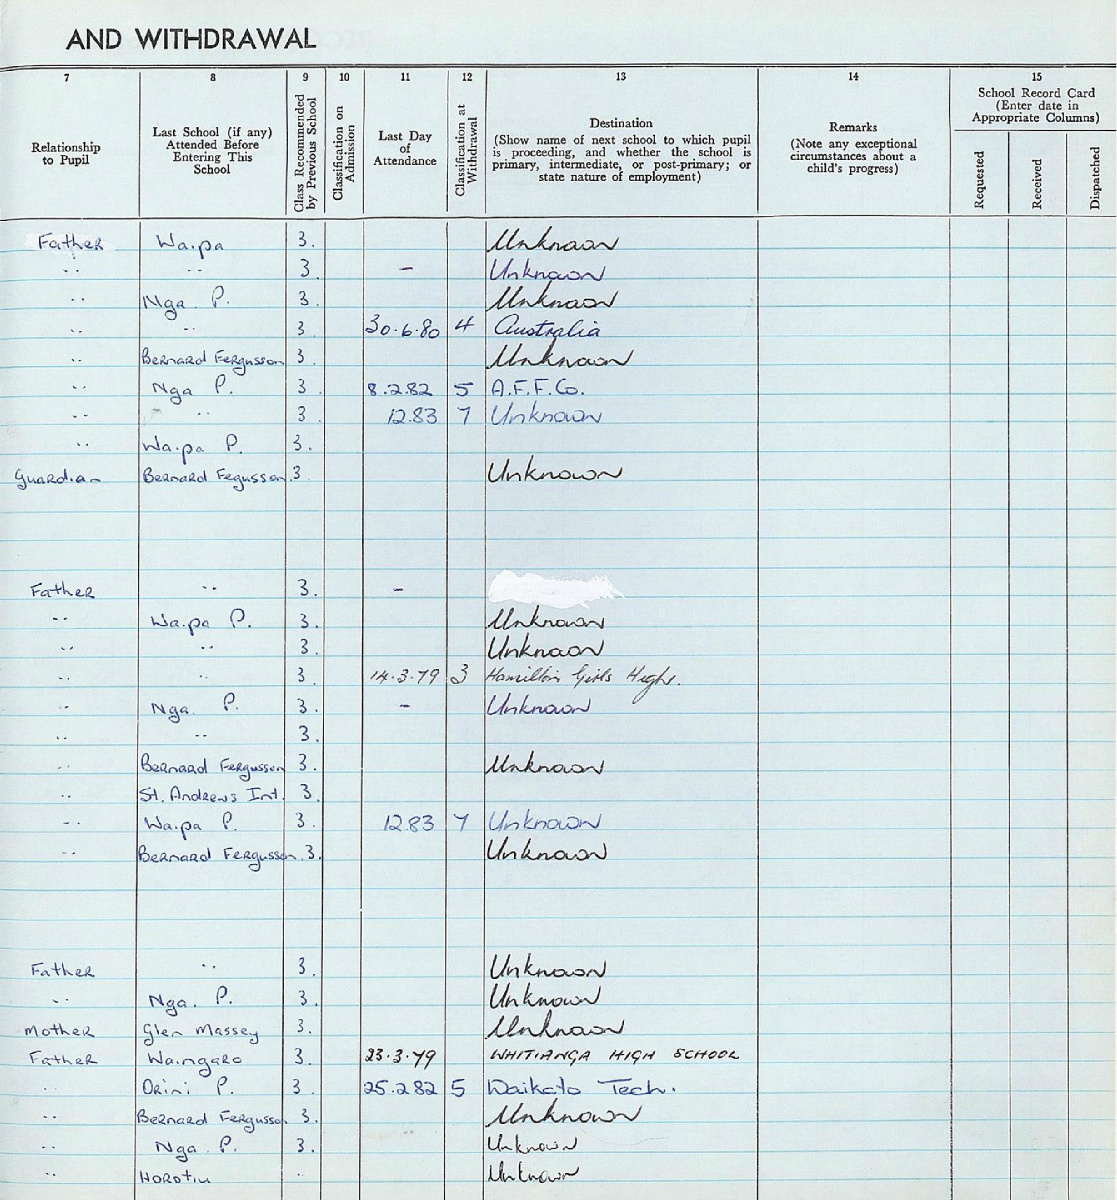 AND WITHDRAWAL
7 8 9 10 11 12 13 14 15
Relationship to Pupil
Last School (if any) Attended Before Entering This School
Class Recommended by Previous School
Classification on Admission
Last Day of Attendance
Classification at Withdrawal
Destination
(Show name of next school to which pupil is proceeding, and whether the school is primary, intermediate, or post-primary; or state nature of employment)
Remarks
(Note any exceptional circumstances about a child's progress)
School Record Card
(Enter date in Appropriate Columns)
Requested
Received
Dispatched
Father Waipa 3. Unknown
.. .. 3. – Unknown
.. Nga P. 3. Unknown
.. .. 3. 30.6.80 4 Australia
.. Bernard Fergusson 3. Unknown
.. Nga P. 3. 8.2.82 5 A.F.F.Co.
.. 3. 12.83 7 Unknown
.. Waipa P. 3.
Guardian Bernard Fegusson 3 Unknown
Father .. 3. –
.. Waipa P. 3. Unknown
.. .. 3. Unknown
.. .. 3. 14.3.79 3 Hamilton Girls High.
.. Nga P. 3. – Unknown
.. .. 3.
.. Bernard Fergusson 3. Unknown
.. St. Andrews Int. 3.
.. Waipa P. 3. 12.83 7 Unknown
.. Bernard Fergusson 3. Unknown
Father .. 3. Unknown
.. Nga. P. 3. Unknown
Mother Glen Massey 3. Unknown
Father Waingaro 3. 23.3.79 WHITIANGA HIGH SCHOOL
.. Orini P. 3. 25.2.82 5 Waikato Tech.
.. Bernard Fergusson 3. Unknown
.. Nga P. 3. Unknown
.. Horotiu .. Unknown